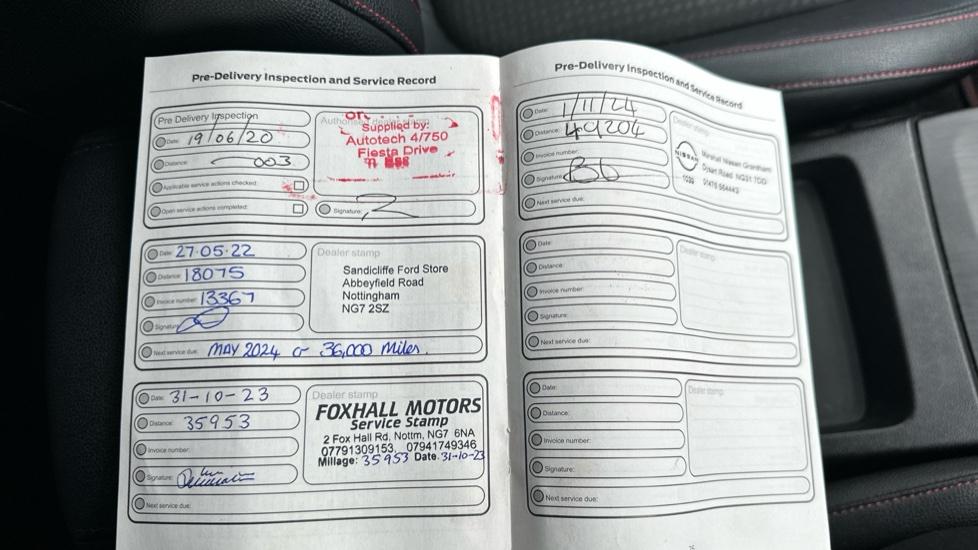 Pre-Delivery Inspection and Service Record
Pre Delivery Inspection
Date: 19/06/20
Distance: 003
Applicable service actions checked:
Open service actions completed:
Supplied by:
Autotech 4/750
Fiesta Drive
Signature:
Date: 27.05.22
Distance: 18075
Invoice number: 13367
Signature:
Next service due: MAY 2024 or 36,000 Miles.
Dealer stamp
Sandicliffe Ford Store
Abbeyfield Road
Nottingham
NG7 2SZ
Date: 31-10-23
Distance: 35953
Invoice number:
Signature:
Next service due:
Dealer stamp
FOXHALL MOTORS
Service Stamp
2 Fox Hall Rd, Nottm, NG7 6NA
07791309153, 07941749346
Millage: 35953 Date 31-10-23
Pre-Delivery Inspection and Service Record
Date: 1/11/24
Distance: 49204
Invoice number:
Signature:
Next service due:
Dealer stamp
NISSAN
Marshall Nissan Grantham
Dysart Road NG31 7DD
Date:
Distance:
Invoice number:
Signature:
Next service due:
Dealer stamp
Date:
Distance:
Invoice number:
Signature:
Next service due:
Dealer stamp